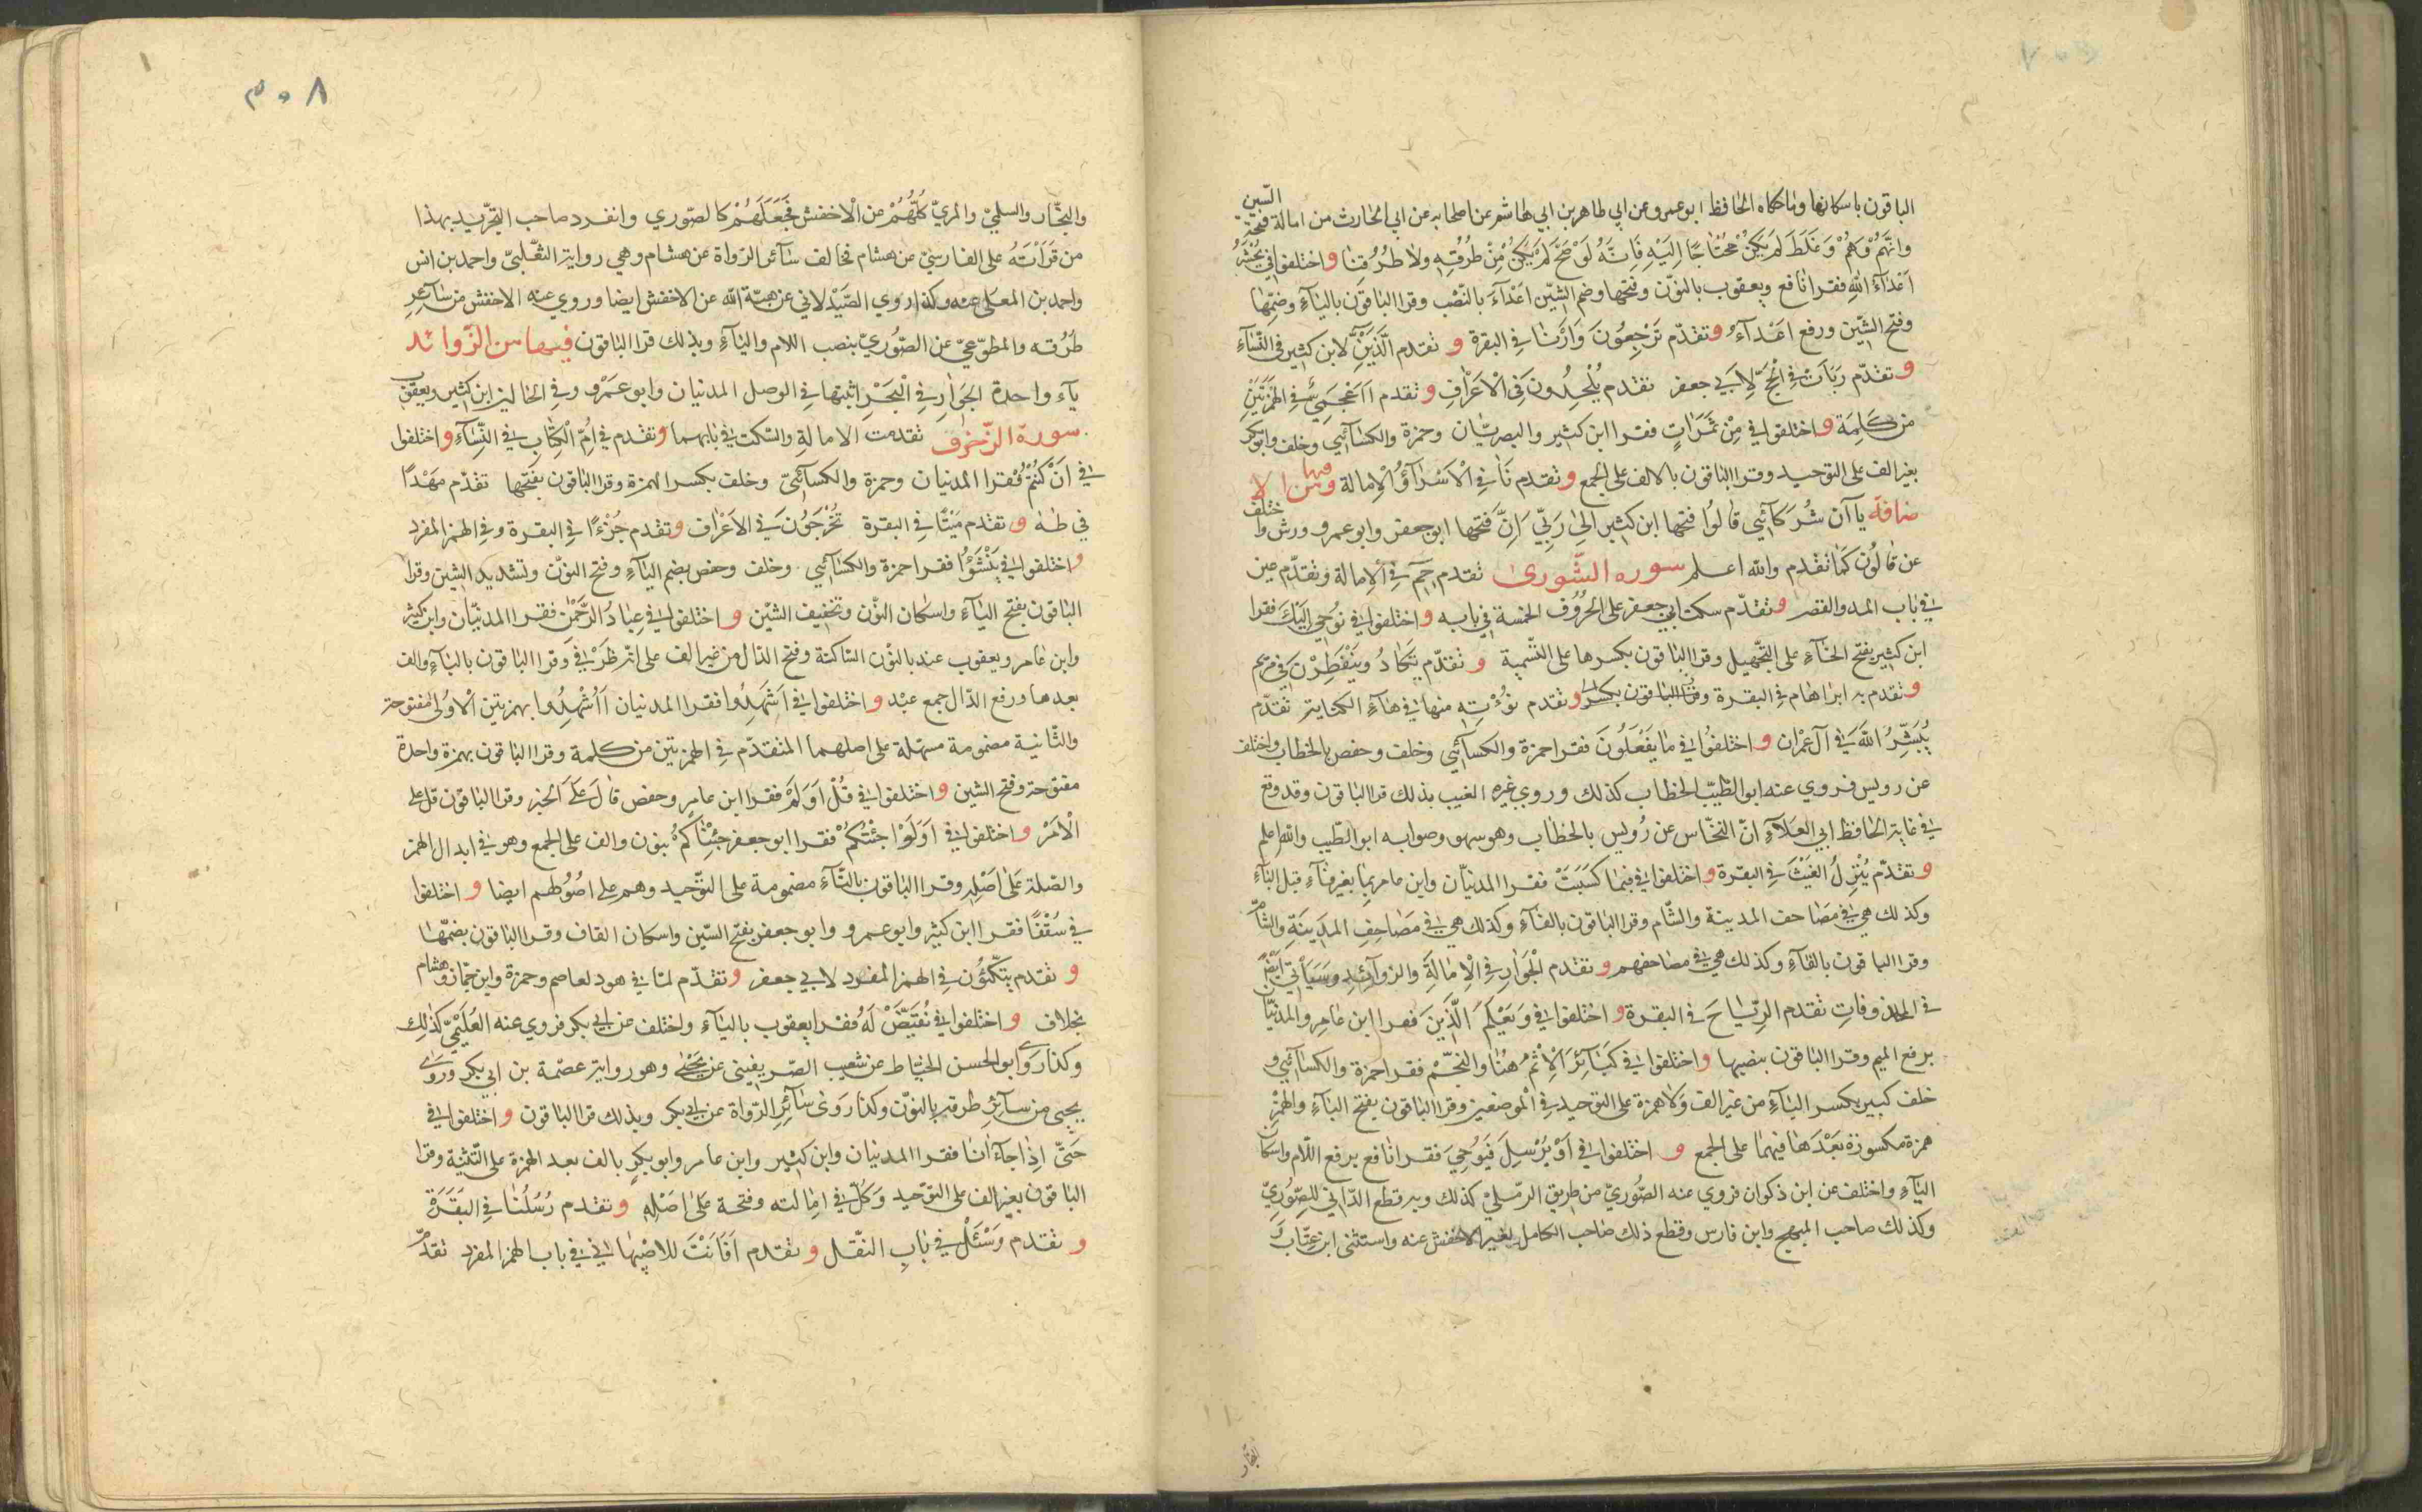 الباقون باسكانها وماحكاه الحافظ ابوعمرو عن ابي طاهر بن ابي هاشم عن اصحابه عن ابي الحارث من امالة فتحة السّين
وانّهم وَهْمٌ وَغَلَطَ لم يكن مُحْتاجًا اِلَيْهِ فَاِنّه لَوْ صَحّ لم يكن مِنْ طُرُقِهِ ولا طُرُقِنا واختلفوا في يُحْشَرُ
اَعْدَآءُ اللهِ فقرا نافع ويعقوب بالنّون وفتحها وضم الشّين اَعْدَآءَ بالنّصْب وقرا الباقون باليآءِ وضمّها
وفتح الشّين ورفع اعْدآءُ وتقدّم تَرْجِعُونَ وَاَرْنا في البقرة و تقدم الَّذَيْنِ لابن كثير في النِّسَآءِ
وتقدّم رَبَأَتْ في الْحَجّ لِاَبي جعفر تقدم يُلْحِدُونَ في الْاَعْرٰافِ وتقدم ااَعْجَمِيٌّ في الهَمْزَتَيْنِ
من كَلِمَة واختلفوا في مِنْ ثَمَرَاتٍ فقرا ابن كثير والبصريّان وحمزة والكسآئي وخلف وابوبكر
بغير الف على التوحيد وقرا الباقون بالالف على الجمع وتقدم نَاٰ في الْاَسْرآءِ وَالْاِمالة وفيها من الا
ضافة يآآن شُرَكآئي قالُوا فتحها ابن كثير اِلٰى رَبّي اِنّ فتحها ابوجعفر وابوعمرو ورش واختلف
عن قالُونَ كما تقدم والله اعلم سورة الشّورىٰ تقدم حٰمٓ في الْاِمالة وتقدّم عين
في باب المد والقصر وتقدّم سكت ابي جعفر على الحُرُوف الخمسة في بابه واختلفوا في نُوحِي اِلَيْكَ فقرا
ابن كثير بفتح الحآءِ على التّجهيل وقرا الباقون بكسرها على التّسمية و تقدّم يَكادُ وينفَطِرْنَ في مريم
وتقدم به ابراهام في البقرة وقرا الباقون بكسر وتقدم نُؤْتِه منها في هآءِ الكناية تقدّم
يُبَشِّرُ اللّهُ في اٰل عمْران و اختلفُوا في ما يَفْعَلُونَ فقرا حمزة والكسآئي وخلف وحفص بالخطاب واختلف
عن رويس فروي عنه ابوالطّيّب الخطاب كذلك وروي غيره الغيب بذلك قرا الباقون وقد وقع
في غاية الحافظ ابي العَلَآءِ انّ النخّاس عن رُويس بالخطاب وهو سهو وصوابه ابوالطّيب والله اعلم
وتقدّم يُنَزِّلُ الغَيْثَ في البقرة واختلفوا في فبما كسَبَتْ فقرا المدنيّان وابن عامر بما بغير فآءٍ قبل البآءِ
وكذلك هي في مصاحف المدينة والشّام وقرا الباقون بالفآءِ وكذلك هي في مصاحف المدينةِ والشّام
وقرا الباقون بالفآءِ وكذلك هي في مصاحفهم وتقدم الْجَوارِ في الْاِمالَةِ والزّوآئد وسَيَأتي ايضًا
في المحذوفات تقدم الرّيٰاحَ في البقرة و اختلفوا في وَيَعْلَمَ الَّذينَ فقرا ابن عامر والمدنيّان
برفع الميم وقرا الباقون بنصبها واختلفوا في كَبآئِرَ الْاِثْمِ هُنا والنّجْم فقرا حمزة والكسآئي و
خلف كبير بكسر البآءِ من غير الف ولا همزة على التوحيد في الموضعين وقرا الباقون بفتح البآءِ والف
همزة مكسورة بَعْدَها فيهما على الجمع و اختلفوا في اَوْ يُرْسِلَ فَيُوحِيَ فقرا نافع برفع اللّام واسكان
اليآءِ واختلف عن ابن ذكوان فروي عنه الصُّوريّ من طريق الرّمليّ كذلك وبه قطع الدّاني للصّوريّ
وكذلك صاحب المبهج وابن فارس وقطع ذلك صاحب الكامل لغير الاخفش عنه واستثنى ابن عتّاب
النجّار
٣٠٨
والنجّار والسلميّ والمريّ كلّهُمْ عن الْاخفش فجَعَلَهُمْ كالصّوري وانفرد صاحب التجريد بهذا
من قرَأتَهُ على الفارسيّ عن هشام فخالف سآئر الرّواة عن هشام وهي رواية الثّعلبيّ واحمد بن انس
واحمد بن المعلّى عنه وكذا روي الصَّيْدلاني عن هبة الله عن الاخفش ايضا وروي عنه الاخفش من سآئر
طُرُقه والمطوّعيّ عن الصّوريّ بنصب اللام واليآءِ وبذلك قرا الباقون فيها من الزّوائد
يآء واحدة الجَوارِ في الْبَحْرِ اثبتها في الوصل المدنيان وابوعمرو وفي الحالين ابن كثير ويعقوب
سورة الزّخرف تقدمت الامالة والسّكت في بابهما وتقدم في اُمِّ الْكِتابِ في النِّسآءِ واختلفوا
في اَنْ كُنْتُمْ فقرا المدنيان وحمزة والكسآئيّ وخلف بكسر الهمزة وقرا الباقون بفتحها تقدّم مَهْدًا
في طٰهٰ و تقدم مَيْتًا في البقرة تُخْرَجُونَ في الاعْراف وتقدم جُزْءًا في البقرة وفي الهمز المفرد
واختلفوا في يُنَشَّؤُا فقرا حمزة والكسآئي وخلف وحفص بضم اليآءِ وفتح النون وتشديد الشين وقرا
الباقون بفتح اليآءِ واسكان النّون وتخفيف الشّين و اختلفوا في عِبادُ الرَّحْمٰنِ فقرا المدنيّان وابن كثير
وابن عامر ويعقوب عند بالنّون السّاكنة وفتح الدّال من غير الف على انّه ظرف وقرا الباقون بالبآءِ والف
بعدها ورفع الدّال جمع عبْد و اختلفوا في اَشَهِدُوا فقرا المدنيان أَاُشْهِدُوا بهمزتين الْاُولٰى مفتوحة
والثّانية مضمومة مسهّلة على اصلهما المتقدّم في الهمزتين من كلمة وقرا الباقون بهمزة واحدة
مفتوحة وفتح الشين واختلفوا في قُلْ اَوَلَوْ فقرا ابن عامر وحفص قال عَلَى الخبر وقرا الباقون قل على
الْاَمْر واختلفوا في اَوَلَوْ جِئْتُكُمْ فقرا ابوجعفر جِئْنٰاكُمْ بنون والف على الجمع وهو في ابدال الهمز
والصّلة عَلى اصْلِه وقرا الباقون بالتّآءِ مضمومة على التوْحيد وهم على اصُولهم ايضا و اختلفوا
في سُقْفًا فقرا ابن كثير وابوعمرو وابوجعفر بفتح السّين واسكان القاف وقرا الباقون بضمّها
و تقدم يَتّكئُون في الهمز المفرد لابي جعفر وتقدّم لمّا في هود لعاصم وحمزة وابن جمّاز وهشام
بخلاف و اختلفوا في نُقَيِّضْ لَهُ فقرا يعقوب باليآءِ واختلف عن ابي بكر فروي عنه العُلَيْمِيّ كذلك
وكذا رَوٰى ابوالحسن الخيّاط عن شعيب الصّريفينى عن يَحْيٰى وهو رواية عصمة بن ابي بكر ورَوٰى
يحيى من سآئر طرقه بالنّون وكذا رَوٰى سآئر الرّواة عن ابي بكر وبذلك قرا الباقون واختلفوا في
حَتّى اِذا جآءَ انا فقرا المدنيان وابن كثير وابن عامر وابوبكر بالف بعد الهمزة على التّثنية وقرا
الباقون بغير الف على التوحيد وَكلّ في امالته وفتحه عَلى اصْلِه وتقدم رُسُلُنا في البَقَرَة
و تقدم وَسْئَلْ في بَابِ النّقل وتقدم اَفَاَنْتَ للاصْبهاني في باب الهمز المفرد تقدّم